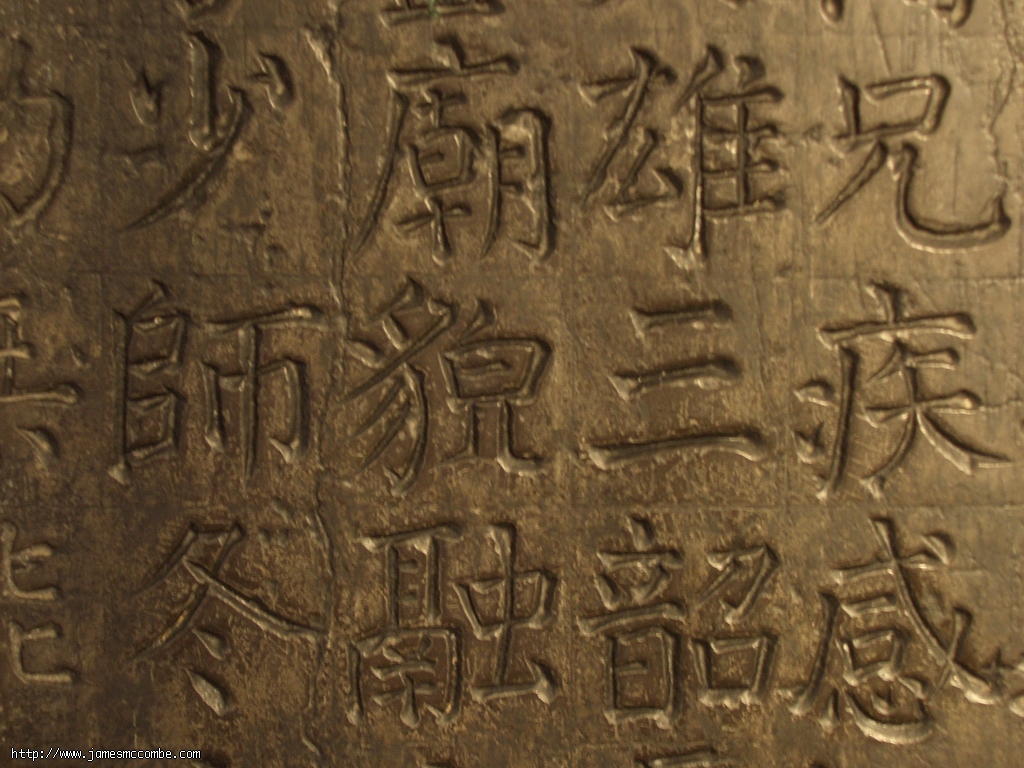 兄疾感
雄三韶
廟貌融
少師冬
http://www.jamesmccombe.com